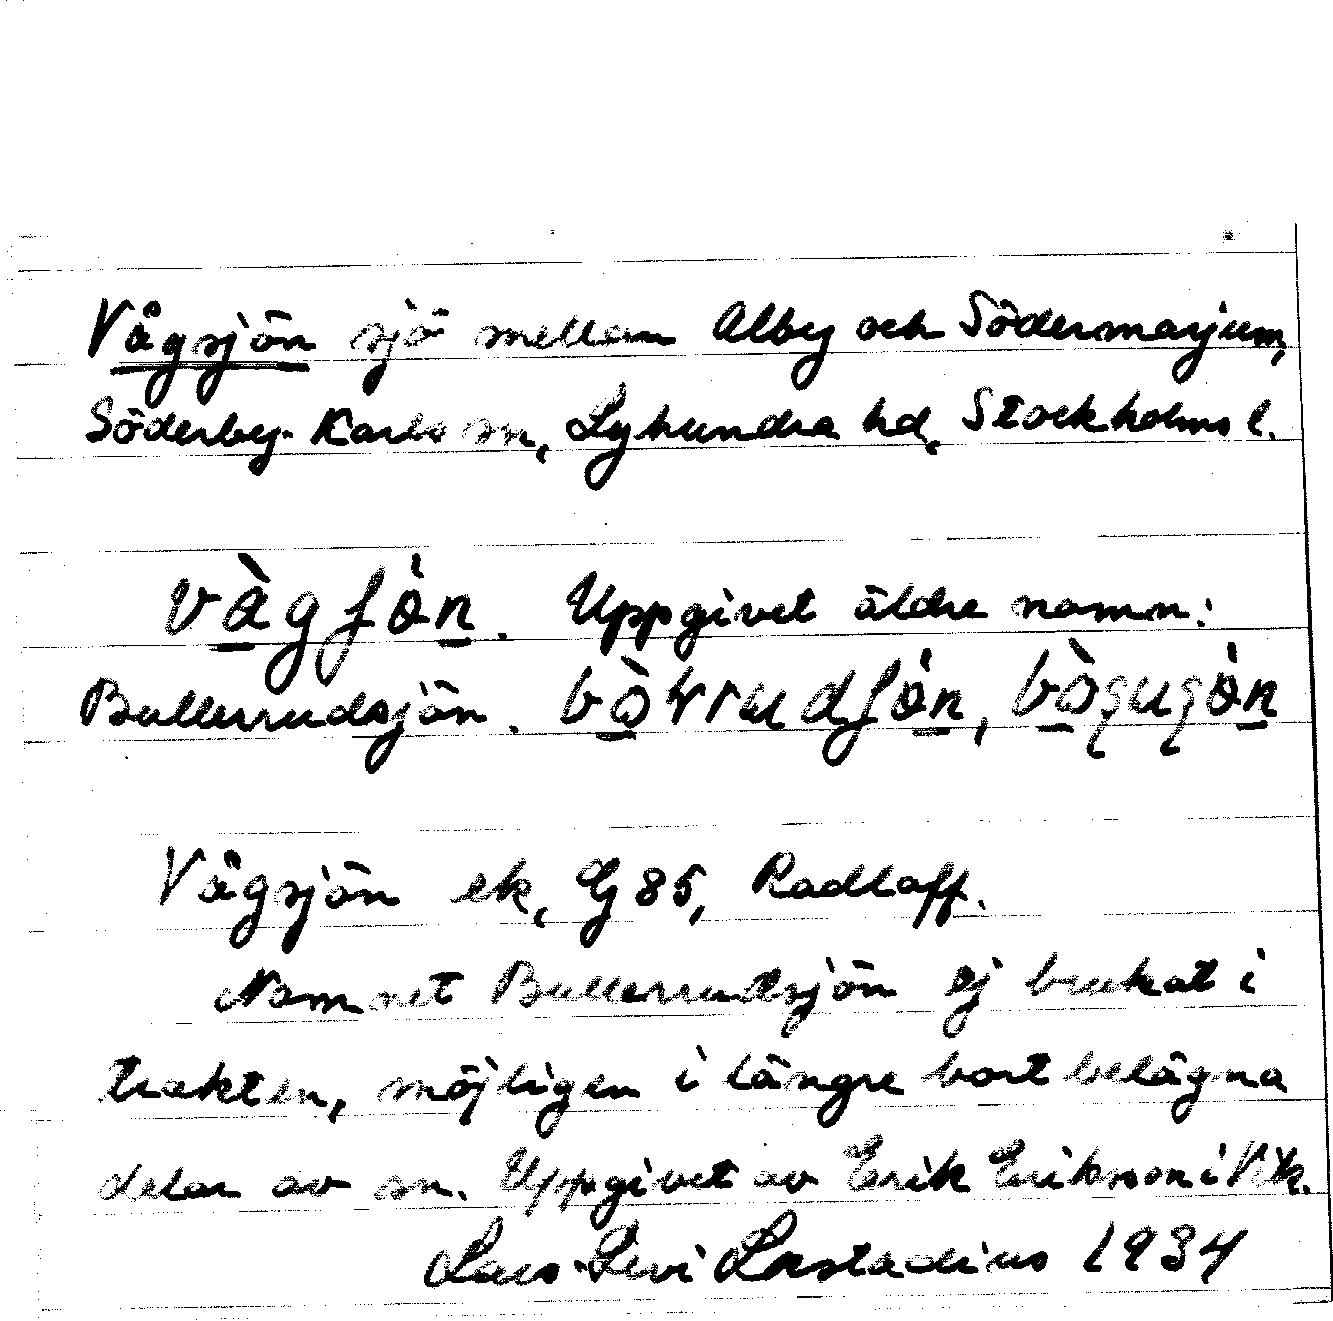 Vågsjön sjö mellan Alby och Södermarjum,
Söderby-Karls sn, Lyhundra hd, Stockholms l.
Uppgivet äldre namn:
Bullerrudsjön.
Vågsjön ek, G 85, Radloff.
Namnet Bullerrudsjön ej brukat i
trakten, möjligen i längre bort belägna
delar av sn. Uppgivet av Erik Erikson i Vik.
Lars-Levi Læstadius 1934